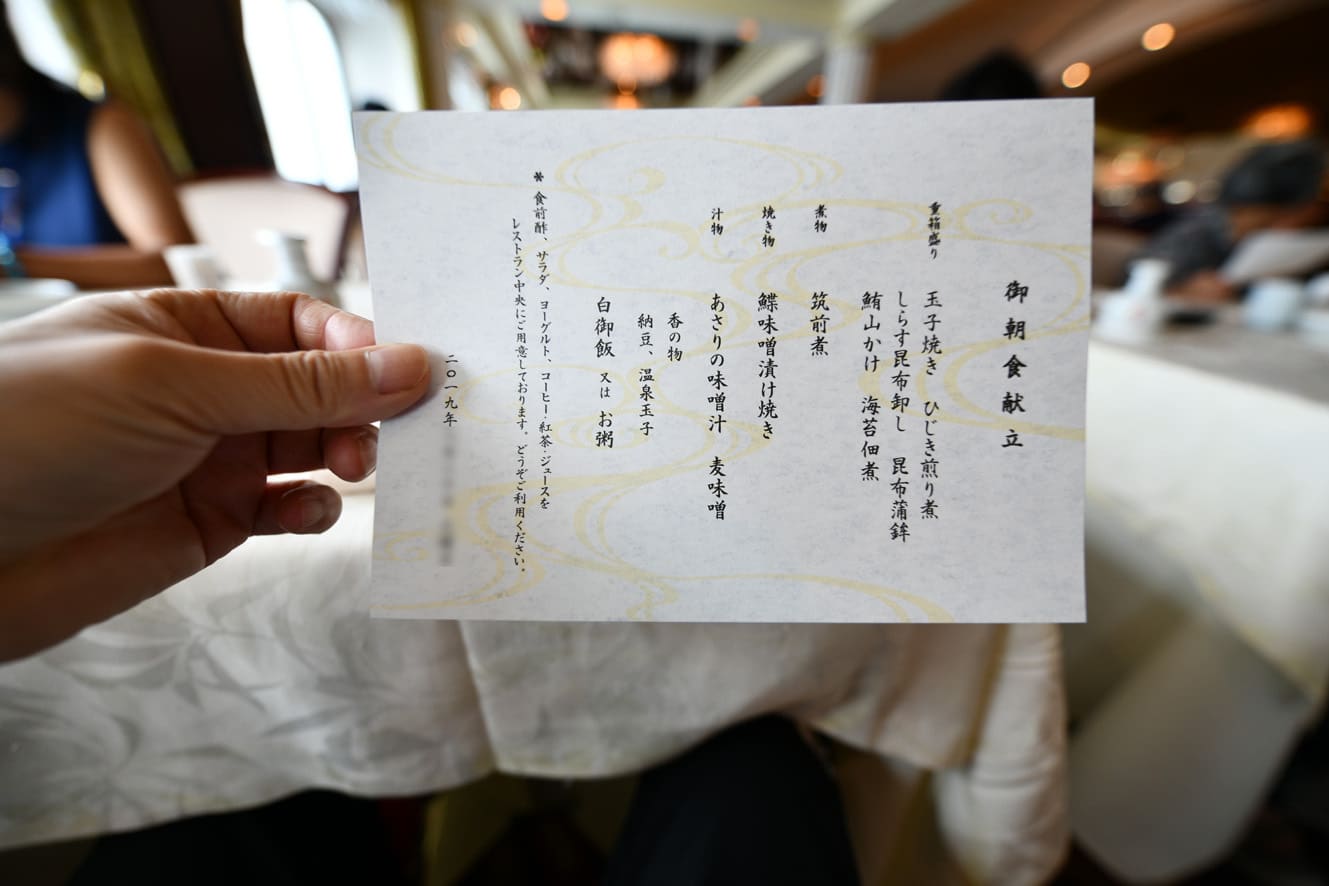 御朝食献立
重箱盛り 玉子焼き ひじき煎り煮
しらす昆布卸し 昆布蒲鉾
鮪山かけ 海苔佃煮
煮物 筑前煮
焼き物 鰈味噌漬け焼き
汁物 あさりの味噌汁 麦味噌
香の物
納豆、温泉玉子
白御飯 又は お粥
* 食前酢、サラダ、ヨーグルト、コーヒー・紅茶・ジュースを
レストラン中央にご用意しております。どうぞご利用ください。
二〇一九年